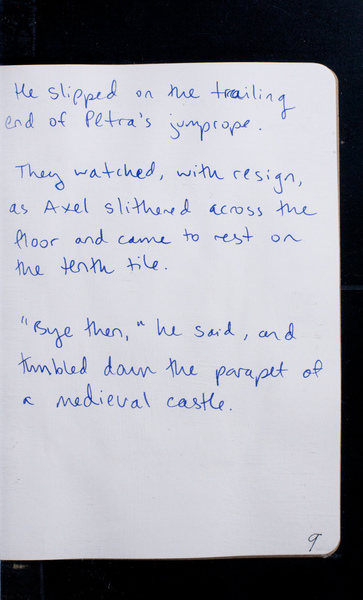 He slipped on the trailing
end of Petra's jumprope.
They watched, with resign,
as Axel slithered across the
floor and came to rest on
the tenth tile.
"Bye then," he said, and
tumbled down the parapet of
a medieval castle.
9